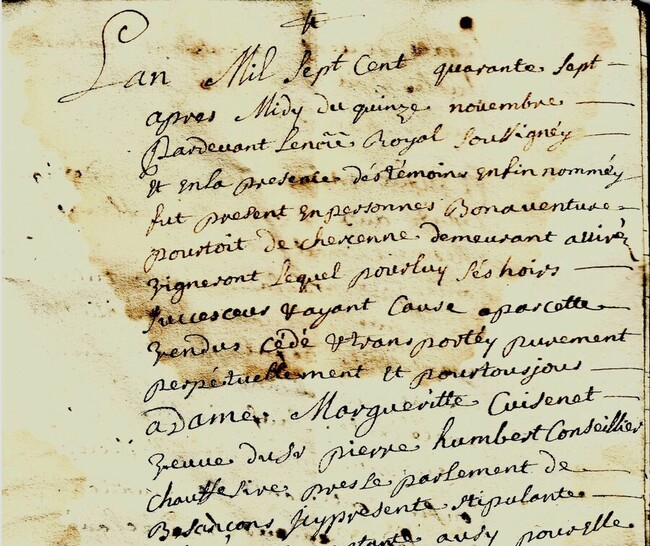 Lan Mil sept Cent quarante sept
apres Midy du quinze novembre
Pardevant le nore Royal soussigney
Et En la presence des Témoins Enfin nomméy
fut present En personnes Bonaventure
pourtoit de cherenne demeurant a
vigneront lequel pour luy sés hoirs
successeurs & ayant Cause a par cette
vendus cédé & transportéy purement
perpétuellement Et pour tousjous
a Dame Margueritte Cuisenet
veuve du Sr pierre humbert Conseillier
Chauffe Sire pres le parlement de
Besançons Jcy présente stipulante
aussy pour Elle